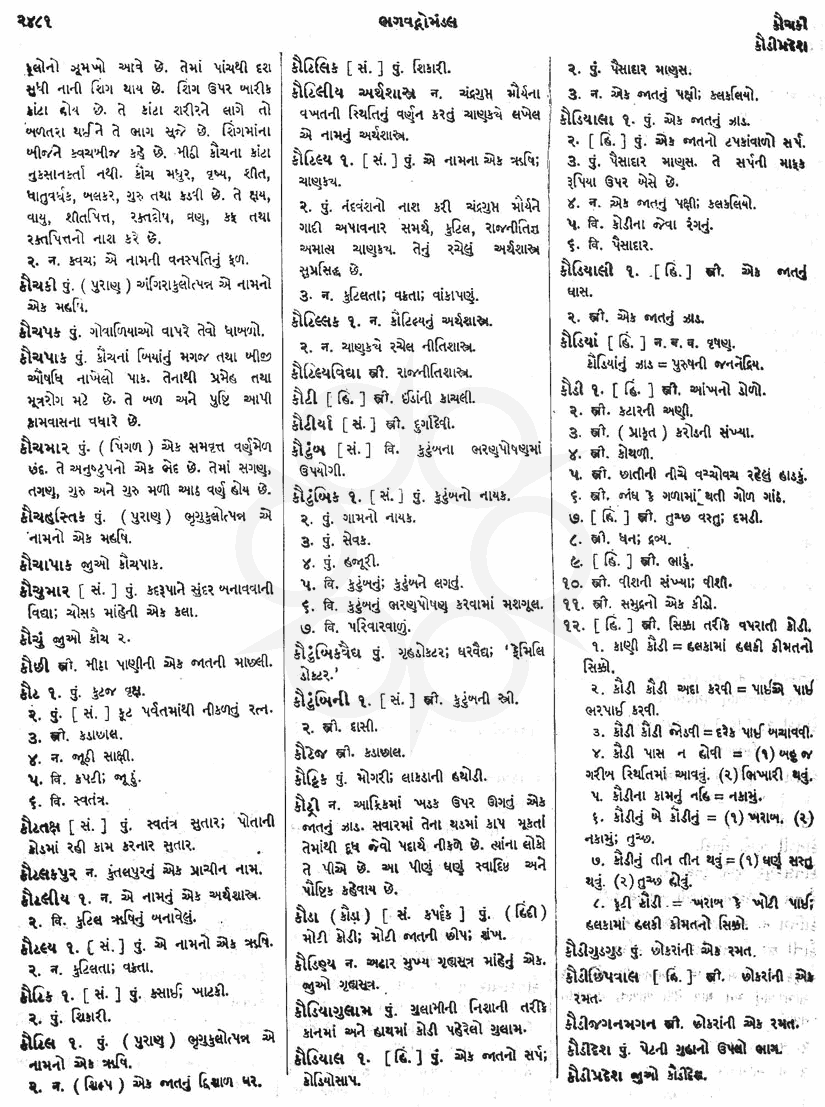 ૨૪૮૧
ભગવદ્ગોમંડલ
કૌચકી
કૌડીપ્રદેશ
ફૂલોનો ઝૂમખો આવે છે. તેમાં પાંચથી દશ
સુધી નાની શિંગ થાય છે. શિંગ ઉપર બારીક
કાંટા હોય છે. તે કાંટા શરીરને લાગે તો
બળતરા થઈને તે ભાગ સૂજે છે. શિંગમાંના
બીજને કવચબીજ કહે છે. મીઠી કૌચના કાંટા
નુકસાનકર્તા નથી. કૌચ મધુર, વૃષ્ય, શીત,
ધાતુવર્ધક, બલકર, ગુરુ તથા કડવી છે. તે ક્ષય,
વાયુ, શીતપિત્ત, રક્તદોષ, વ્રણ, કફ તથા
રક્તપિત્તનો નાશ કરે છે.
૨. ન. કવચ; એ નામની વનસ્પતિનું ફળ.
કૌચકી પું. ( પુરાણ ) અંગિરાકુલોત્પન્ન એ નામનો
એક મહર્ષિ.
કૌચપક પું. ગોવાળિયાઓ વાપરે તેવો ધાબળો.
કૌચપાક પું. કૌચનાં બિયાંનું મગજ તથા બીજી
ઔષધિ નાખેલો પાક. તેનાથી પ્રમેહ તથા
મૂત્રરોગ મટે છે. તે બળ અને પુષ્ટિ આપી
કામવાસના વધારે છે.
કૌચમાર પું. ( પિંગળ ) એક સમવૃત્ત વર્ણમેળ
છંદ. તે અનુષ્ટુપનો એક ભેદ છે. તેમાં સગણ,
તગણ, ગુરુ અને ગુરુ મળી આઠ વર્ણ હોય છે.
કૌચહસ્તિક પું. ( પુરાણ ) ભૃગુકુલોત્પન્ન એ
નામનો એક મહર્ષિ.
કૌચાપાક જુઓ કૌચપાક.
કૌચુમાર [ સં. ] પું. કદરૂપાને સુંદર બનાવવાની
વિદ્યા; ચોસઠ માંહેની એક કલા.
કૌચું જુઓ કૌચ ૨.
કૌછી સ્ત્રી. મીઠા પાણીની એક જાતની માછલી.
કૌટ ૧. પું. કુટજ વૃક્ષ.
૨. પું. [ સં. ] કૂટ પર્વતમાંથી નીકળતું રત્ન.
૩. સ્ત્રી. કડાછાલ.
૪. ન. જૂઠી સાક્ષી.
૫. વિ. કપટી; જૂઠું.
૬. વિ. સ્વતંત્ર.
કૌટતક્ષ [ સં. ] પું. સ્વતંત્ર સુતાર; પોતાની
કોડમાં રહી કામ કરનાર સુતાર.
કૌટલકપુર ન. કુંતલપુરનું એક પ્રાચીન નામ.
કૌટલીય ૧. ન. એ નામનું એક અર્થશાસ્ત્ર.
૨. વિ. કુટિલ ઋષિનું બનાવેલું.
કૌટલ્ય ૧. [ સં. ] પું. એ નામનો એક ઋષિ.
૨. ન. કુટિલતા; વક્રતા.
કૌટિક ૧. [ સં. ] પું. કસાઈ; ખાટકી.
૨. પું. શિકારી.
કૌટિલ ૧. પું. ( પુરાણ ) ભૃગુકુલોત્પન્ન એ
નામનો એક ઋષિ.
૨. ન. ( શિલ્પ ) એક જાતનું દ્વિશાળ ઘર.
કૌટિલિક [ સં. ] પું. શિકારી.
કૌટિલીય અર્થશાસ્ત્ર ન. ચંદ્રગુપ્ત મૌર્યના
વખતની સ્થિતિનું વર્ણન કરતું ચાણક્યે લખેલ
એ નામનું અર્થશાસ્ત્ર.
કૌટિલ્ય ૧. [ સં. ] પું. એ નામના એક ઋષિ;
ચાણક્ય.
૨. પું. નંદવંશનો નાશ કરી ચંદ્રગુપ્ત મૌર્યને
ગાદી અપાવનાર સમર્થ, કુટિલ, રાજનીતિજ્ઞ
અમાત્ય ચાણક્ય. તેનું રચેલું અર્થશાસ્ત્ર
સુપ્રસિદ્ધ છે.
૩. ન. કુટિલતા; વક્રતા; વાંકાપણું.
કૌટિલ્લક ૧. ન. કૌટિલ્યનું અર્થશાસ્ત્ર.
૨. ન. ચાણક્યે રચેલ નીતિશાસ્ત્ર.
કૌટિલ્યવિદ્યા સ્ત્રી. રાજનીતિશાસ્ત્ર.
કૌટી [ હિં. ] સ્ત્રી. ઈંડાંની કાચલી.
કૌટીર્યા [ સં. ] સ્ત્રી. દુર્ગાદેવી.
કૌટુંબ [ સં. ] વિ. કુટુંબના ભરણપોષણમાં
ઉપયોગી.
કૌટુંબિક ૧. [ સં. ] પું. કુટુંબનો નાયક.
૨. પું. ગામનો નાયક.
૩. પું. સેવક.
૪. પું. હજૂરી.
૫. વિ. કુટુંબનું; કુટુંબને લગતું.
૬. વિ. કુટુંબનું ભરણપોષણ કરવામાં મશગૂલ.
૭. વિ. પરિવારવાળું.
કૌટુંબિકવૈદ્ય પું. ગૃહડોક્ટર; ઘરવૈદ્ય; ‘ ફેમિલિ
ડોક્ટર.’
કૌટુંબિની ૧. [ સં. ] સ્ત્રી. કુટુંબની સ્ત્રી.
૨. સ્ત્રી. દાસી.
કૌટેજ સ્ત્રી. કડાછાલ.
કૌટ્ટિક પું. મોગરી; લાકડાની હથોડી.
કૌટ્રી ન. આફ્રિકામાં ખડક ઉપર ઊગતું એક
જાતનું ઝાડ. સવારમાં તેના થડમાં કાપ મૂકતાં
તેમાંથી દૂધ જેવો પદાર્થ નીકળે છે. ત્યાંના લોકો
તે પીએ છે. આ પીણું ઘણું સ્વાદિષ્ટ અને
પૌષ્ટિક કહેવાય છે.
કૌડા ( કૌડા ) [ સં. કપર્દક ] પું. ( હિંદી )
મોટી કોડી; મોટી જાતની છીપ; શંખ.
કૌડિણ્ય ન. અઢાર મુખ્ય ગૃહ્યસૂત્ર માંહેનું એક.
જુઓ ગૃહ્યસૂત્ર.
કૌડિયાગુલામ પું. ગુલામીની નિશાની તરીકે
કાનમાં અને હાથમાં કોડી પહેરેલો ગુલામ.
કૌડિયાલ ૧. [ હિં. ] પું. એક જાતનો સર્પ;
કોડિયોસાપ.
૨. પું. પૈસાદાર માણસ.
૩. ન. એક જાતનું પક્ષી; કલકલિયો.
કૌડિયાલા ૧. પું. એક જાતનું ઝાડ.
૨. [ હિં. ] પું. એક જાતનો ટપકાંવાળો સર્પ.
૩. પું. પૈસાદાર માણસ. તે સર્પની માફક
રૂપિયા ઉપર બેસે છે.
૪. ન. એક જાતનું પક્ષી; કલકલિયો.
૫. વિ. કોડીના જેવા રંગનું.
૬. વિ. પૈસાદાર.
કૌડિયાલી ૧. [ હિં. ] સ્ત્રી. એક જાતનું
ઘાસ.
૨. સ્ત્રી. એક જાતનું ઝાડ.
કૌડિયાં [ હિં. ] ન. બ. વ. વૃષણ.
કૌડિયાંનું ઝાડ = પુરુષની જનનેંદ્રિય.
કૌડી ૧. [ હિં. ] સ્ત્રી. આંખનો ડોળો.
૨. સ્ત્રી. કટારની અણી.
૩. સ્ત્રી. ( પ્રાકૃત ) કરોડની સંખ્યા.
૪. સ્ત્રી. કોથળી.
૫. સ્ત્રી. છાતીની નીચે વચ્ચોવચ રહેલું હાડકું.
૬. સ્ત્રી. જાંઘ કે ગળામાં થતી ગોળ ગાંઠ.
૭. [ હિં. ] સ્ત્રી. તુચ્છ વસ્તુ; દમડી.
૮. સ્ત્રી. ધન; દ્રવ્ય.
૯. [ હિં. ] સ્ત્રી. ભાડું.
૧૦. સ્ત્રી. વીશની સંખ્યા; વીશી.
૧૧. સ્ત્રી. સમુદ્રનો એક કીડો.
૧૨. [ હિં. ] સ્ત્રી. સિક્કા તરીકે વપરાતી કોડી.
૧. કાણી કૌડી = હલકામાં હલકી કીમતનો
સિક્કો.
૨. કૌડી કૌડી અદા કરવી = પાઈએ પાઈ
ભરપાઈ કરવી.
૩. કૌડી કૌડી જોડવી = દરેક પાઈ બચાવવી.
૪. કૌડી પાસ ન હોવી = (૧) બહુ જ
ગરીબ સ્થિતિમાં આવવું. (૨) ભિખારી થવું.
૫. કૌડીના કામનું નહિ = નકામું.
૬. કૌડીનું બે કૌડીનું = (૧) ખરાબ. (૨)
નકામું; તુચ્છ.
૭. કૌડીનું તીન તીન થવું = (૧) ઘણું સસ્તું
થવું. (૨) તુચ્છ હોવું.
૮. ફૂટી કૌડી = ખરાબ કે ખોટી પાઈ;
હલકામાં હલકી કીમતનો સિક્કો.
કૌડીગુડગુડ પું. છોકરાંની એક રમત.
કૌડીછિપવાલ [ હિં. ] સ્ત્રી. છોકરાંની એક
રમત.
કૌડીજગનમગન સ્ત્રી. છોકરાંની એક રમત.
કૌડીદેશ પું. પેટની ગુહાનો ઉપલો ભાગ.
કૌડીપ્રદેશ જુઓ કૌડીદેશ.